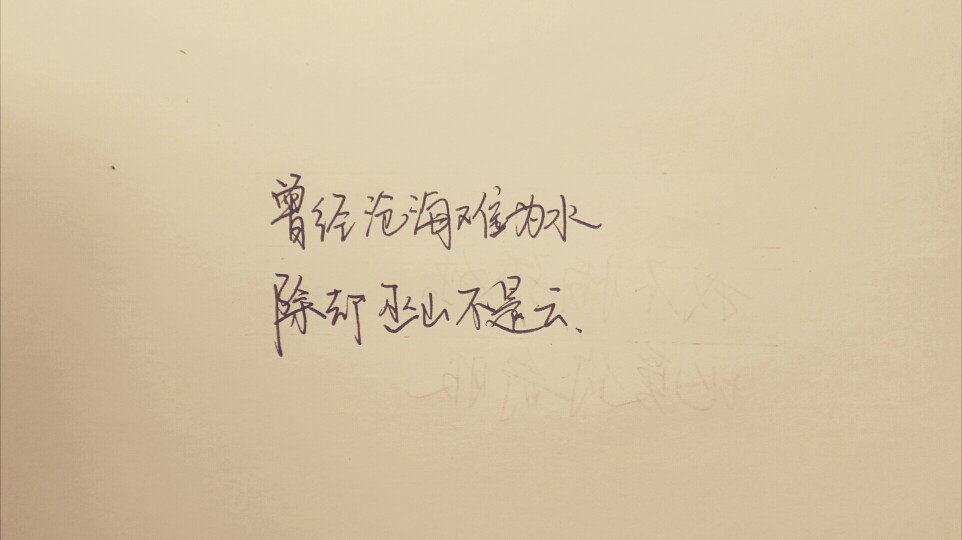 曾经沧海难为水
除却巫山不是云、